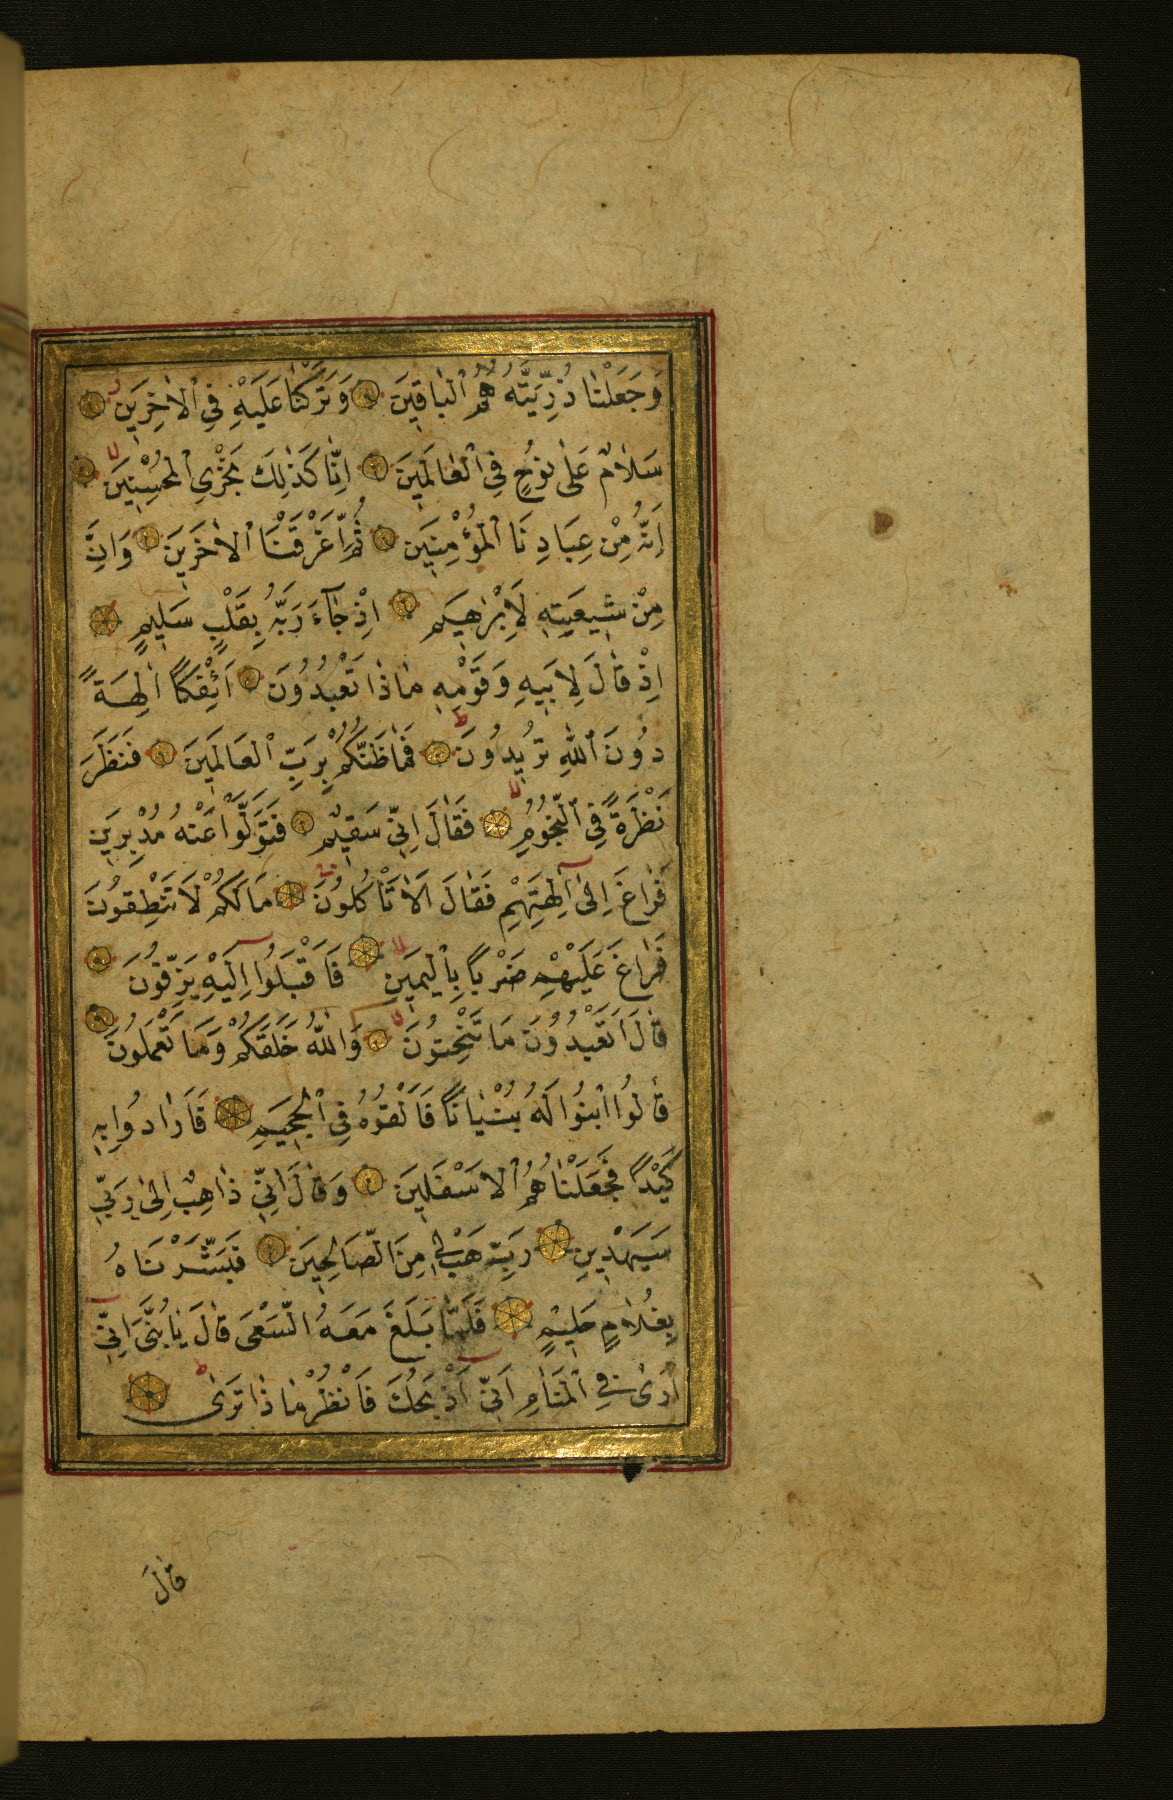 وَجَعَلْنَا ذُرِّيَّتَهُ هُمُ ٱلْبَاقِينَ وَتَرَكْنَا عَلَيْهِ فِي ٱلْاٰخِرِينَ
سَلَامٌ عَلٰى نُوحٍ فِي ٱلْعَالَمِينَ اِنَّا كَذٰلِكَ نَجْزِي ٱلْمُحْسِنِينَ
اِنَّهُ مِنْ عِبَادِنَا ٱلْمُؤْمِنِينَ ثُمَّ اَغْرَقْنَا ٱلْاٰخَرِينَ وَاِنَّ
مِنْ شِيعَتِهِ لَاِبْرٰهِيمَ اِذْ جَآءَ رَبَّهُ بِقَلْبٍ سَلِيمٍ
اِذْ قَالَ لِاَبِيهِ وَقَوْمِهِ مَاذَا تَعْبُدُونَ اَئِفْكًا اٰلِهَةً
دُونَ ٱللّٰهِ تُرِيدُونَ فَمَا ظَنُّكُمْ بِرَبِّ ٱلْعَالَمِينَ فَنَظَرَ
نَظْرَةً فِي ٱلنُّجُومِ فَقَالَ اِنِّي سَقِيمٌ فَتَوَلَّوْا عَنْهُ مُدْبِرِينَ
فَرَاغَ اِلٰى آلِهَتِهِمْ فَقَالَ اَلَا تَأْكُلُونَ مَا لَكُمْ لَا تَنْطِقُونَ
فَرَاغَ عَلَيْهِمْ ضَرْبًا بِٱلْيَمِينِ فَاَقْبَلُوا اِلَيْهِ يَزِفُّونَ
قَالَ اَتَعْبُدُونَ مَا تَنْحِتُونَ وَاللّٰهُ خَلَقَكُمْ وَمَا تَعْمَلُونَ
قَالُوا ابْنُوا لَهُ بُنْيَانًا فَاَلْقُوهُ فِي ٱلْجَحِيمِ فَاَرَادُوا بِهِ
كَيْدًا فَجَعَلْنَاهُمُ ٱلْاَسْفَلِينَ وَقَالَ اِنِّي ذَاهِبٌ اِلٰى رَبِّي
سَيَهْدِينِ رَبِّ هَبْ لِي مِنَ الصَّالِحِينَ فَبَشَّرْنَاهُ
بِغُلَامٍ حَلِيمٍ فَلَمَّا بَلَغَ مَعَهُ السَّعْيَ قَالَ يَا بُنَيَّ اِنِّي
اَرٰى فِي ٱلْمَنَامِ اَنِّي اَذْبَحُكَ فَانْظُرْ مَاذَا تَرٰى
قَالَ